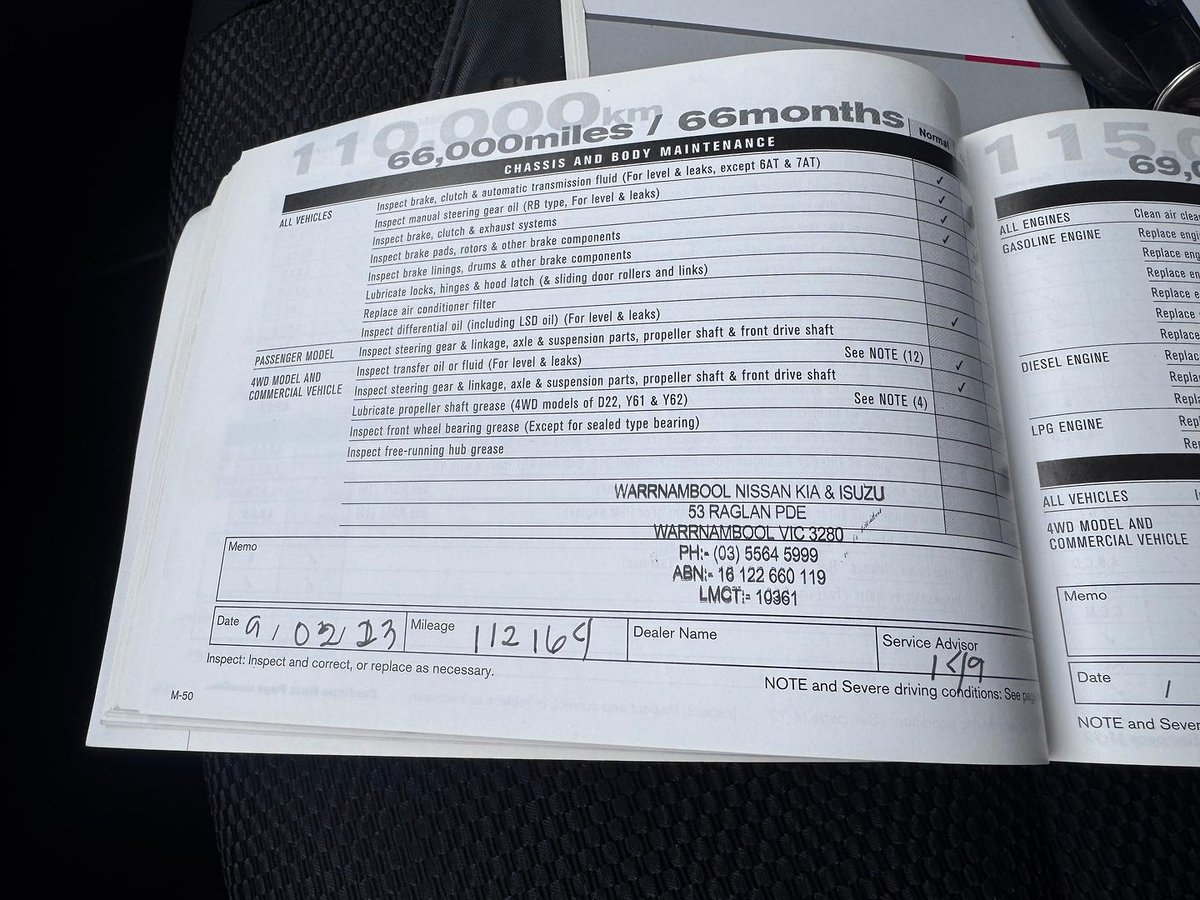 110,000km
66,000miles / 66months
Normal
CHASSIS AND BODY MAINTENANCE
ALL VEHICLES
Inspect brake, clutch & automatic transmission fluid (For level & leaks, except 6AT & 7AT) ✓
Inspect manual steering gear oil (RB type, For level & leaks) ✓
Inspect brake, clutch & exhaust systems ✓
Inspect brake pads, rotors & other brake components ✓
Inspect brake linings, drums & other brake components
Lubricate locks, hinges & hood latch (& sliding door rollers and links)
Replace air conditioner filter
Inspect differential oil (including LSD oil) (For level & leaks) ✓
PASSENGER MODEL
Inspect steering gear & linkage, axle & suspension parts, propeller shaft & front drive shaft
4WD MODEL AND COMMERCIAL VEHICLE
Inspect transfer oil or fluid (For level & leaks) See NOTE (12) ✓
Inspect steering gear & linkage, axle & suspension parts, propeller shaft & front drive shaft ✓
Lubricate propeller shaft grease (4WD models of D22, Y61 & Y62) See NOTE (4)
Inspect front wheel bearing grease (Except for sealed type bearing)
Inspect free-running hub grease
WARRNAMBOOL NISSAN KIA & ISUZU
53 RAGLAN PDE
WARRNAMBOOL VIC 3280
PH:- (03) 5564 5999
ABN:- 16 122 660 119
LMCT:- 10361
Memo
Date 9/02/23 Mileage 112164 Dealer Name Service Advisor
Inspect: Inspect and correct, or replace as necessary.
NOTE and Severe driving conditions: See
M-50
115,0
69,0
ALL ENGINES
Clean air
GASOLINE ENGINE
Replace
Replace
Replace
Replace
Replace
Replace
DIESEL ENGINE
LPG ENGINE
ALL VEHICLES
4WD MODEL AND
COMMERCIAL VEHICLE
Memo
Date
NOTE and